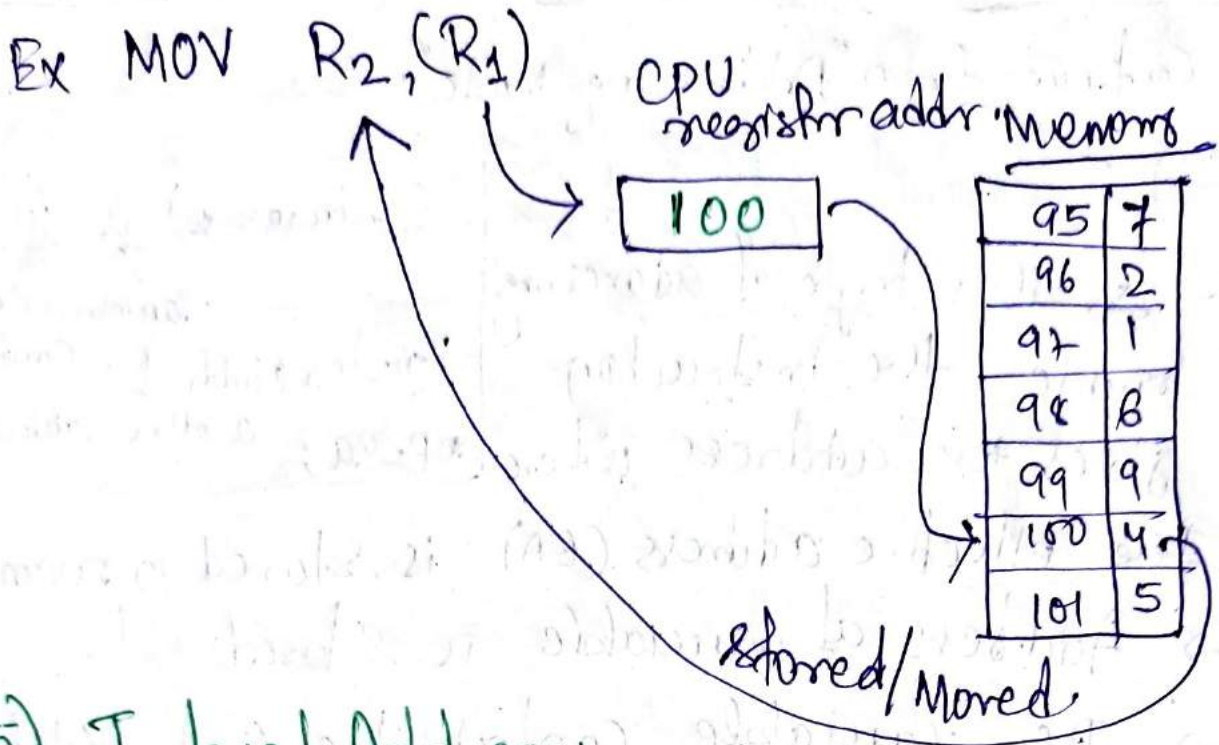 Ex MOV R2, (R1)
CPU
registr addr. Memory
100
95 7
96 2
97 1
98 6
99 9
100 4
101 5
Stored/Moved